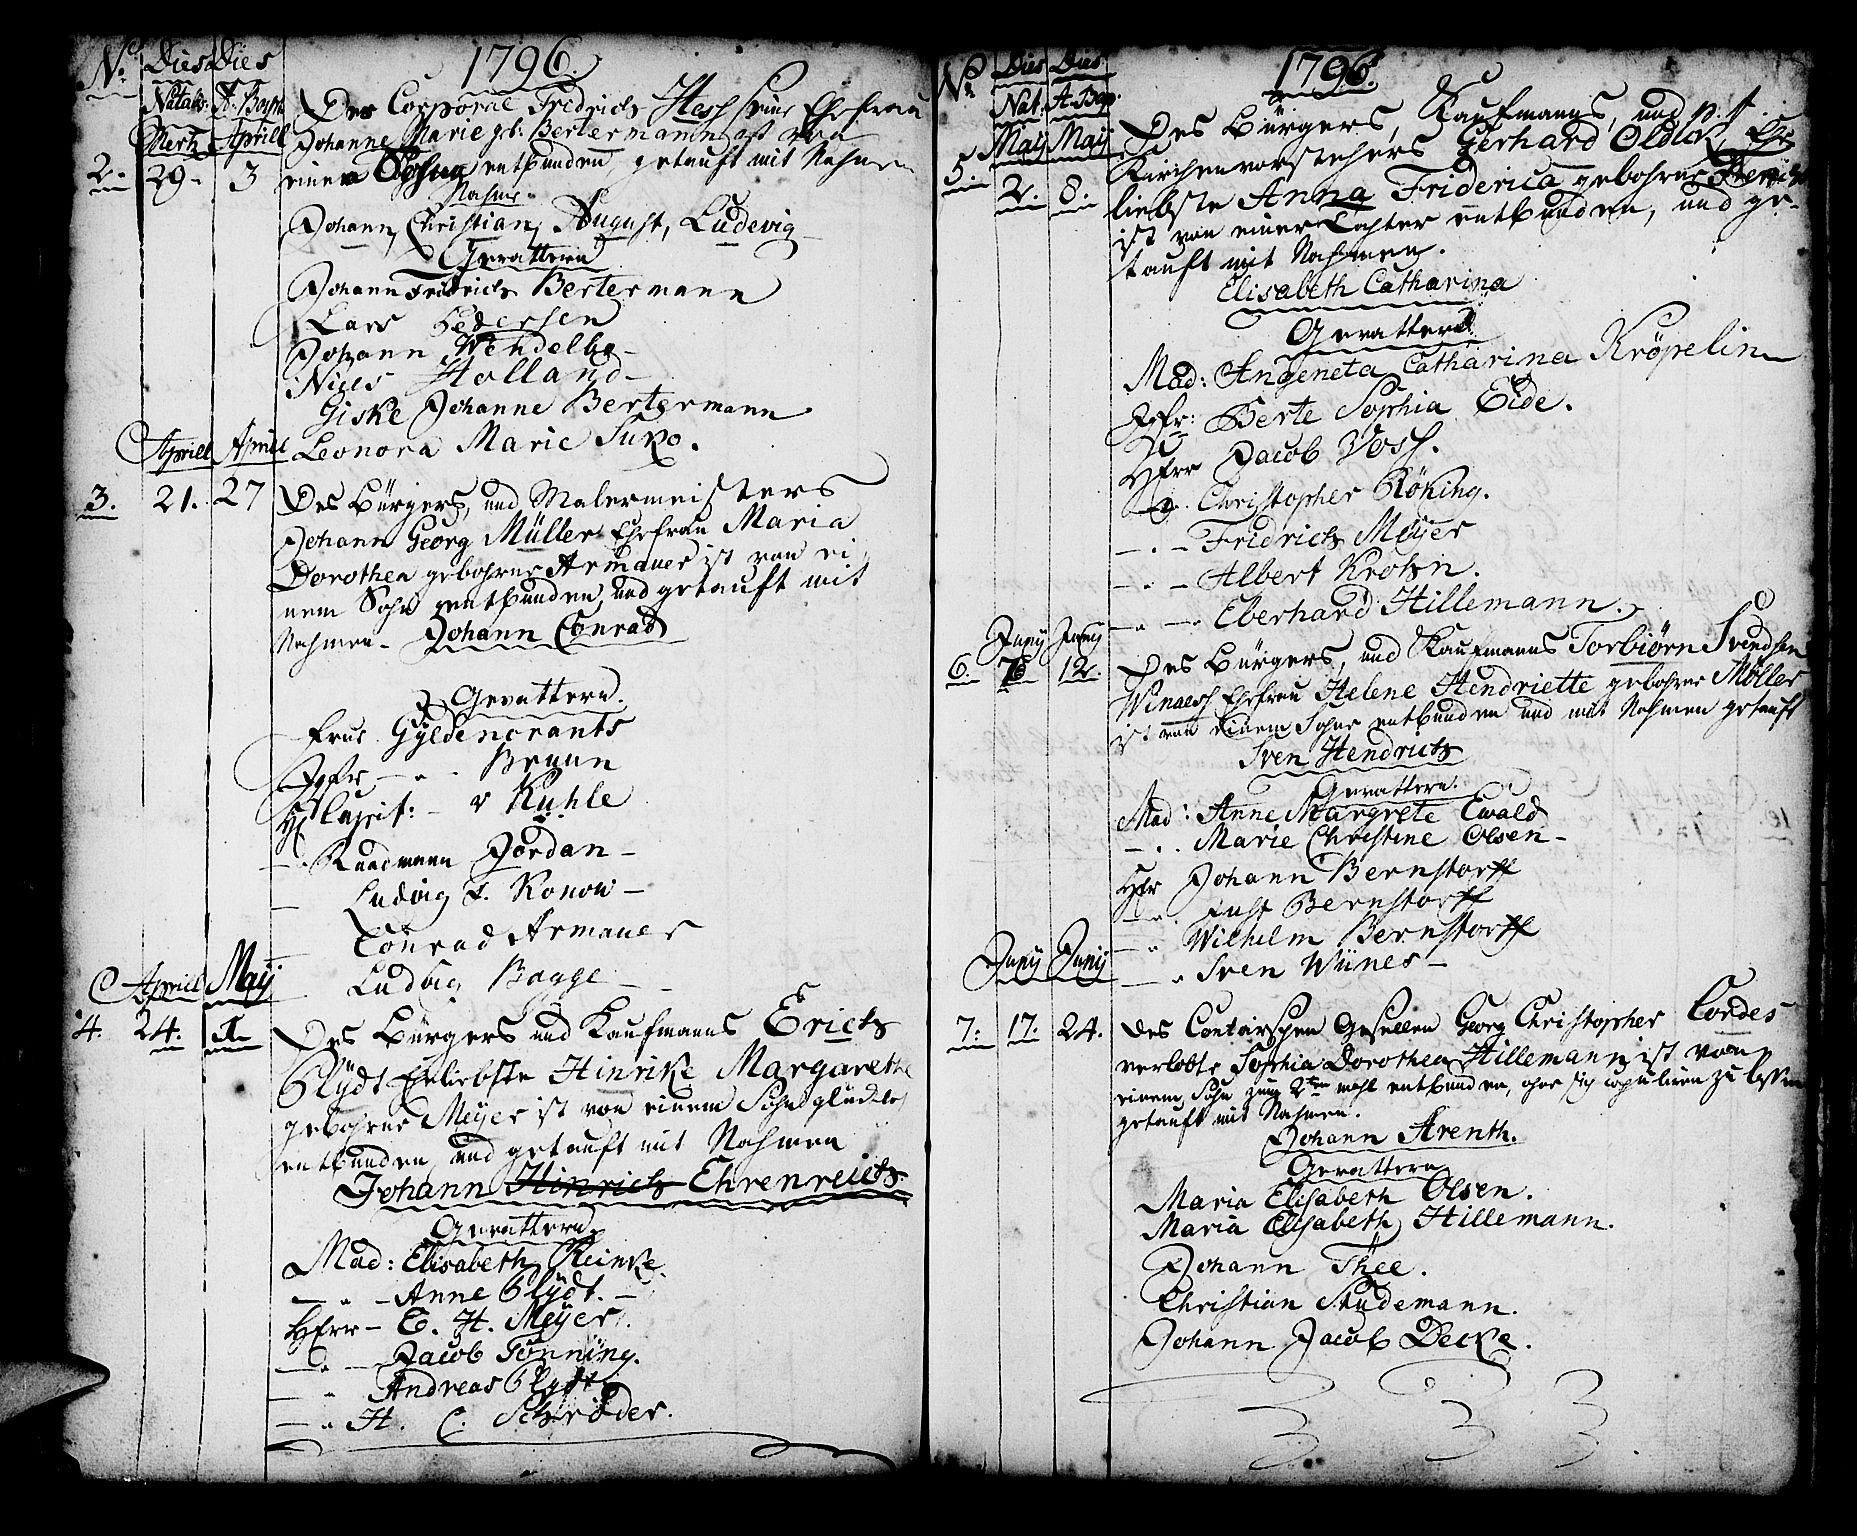 No Dies Dies 1796.
Natalis. A. Bapt.
Mertz Aprill
Des Corporal Fredrich Hesch seine Ehefrau
Johanne Marie geb: Bertermann ist von
2. 29. 3 einem Sohne entbunden, getauft mit Nahmen
Nahme
Johann, Christian, August, Ludevig
Gevattern
Johann Fridrich Bertermann
Lars Pedersen
Johann Wendelbo
Niels Holland
Giske Johanne Bertermann
Aprill Aprill Leonora Marie Suko.
3. 21. 27 Des Bürgers, und Malermeisters
Johann Georg Müller Ehefrau Maria
Dorothea gebohrne Armauer ist von ei
nem Sohn entbunden, und getauft mit
Nahmen. Johann Conrad
Gevattern.
Frue Gyldencrants
Jgfr — " — Bruun
H Capit: — v Kuhle
— Raadmann Jordan —
— Ludvig A. Konow —
Conrad Armauer
Aprill Maij Ludvig Bagge —
4. 24. 1. Des Bürgers und Kaufmanns Erich
Plÿdt Eheliebste Hinrike Margarethe
gebohrne Meÿer ist von einem Sohn glücklich
entbunden, und getauft mit Nahmen
Johann Hinrich Ehrenreich.
Gevattern
Mad: Elisabeth Reinke.
— " — Anne Plÿdt. —
HErr — E. H. Meÿer.
— " — Jacob Tönning.
— " Andreas Plydt
— " H. C. Schröder.
No Dies Dies 1796.
Nat. A. Bap.
Maij Maij
Des Bürgers, Kaufmanns, und p. t.
5. Kirchenvorstehers Gerhard Oldick, Ehe
2. 8. liebste Anna Friderica gebohrne
ist von einer Tochter entbunden, und ge-
tauft mit Nahmen.
Elisabeth Catharina
Gevattern
Mad: Angeneta Catharina Kröpelin
Jgfr: Berte Sophia Eide.
HErr Jacob Vosh.
— " Christopher Röning.
— " — Fridrich Meÿer
— " — Albert Krohn.
— " — Eberhard Hillemann.
Junij Junij
6. 7. 12. Des Bürgers, und Kaufmanns Torbiørn Svendsen
Winaesh Ehefrau Helene Hendriette gebohrne Möller
ist von einem Sohne entbunden und mit Nahmen getauft
Sven Hendrich
Gevattern.
Mad: Anne Margrete Ewald
— " Marie Christine Olsen —
HErr Johann Bernstorff
— " Just Bernstorff
— " Wilhelm Bernstorff
Junij Junij — " Sven Wiines —
7. 17. 24. Des Contoirschen Gesellen Georg Christopher Cordes
verlobte Sophia Dorothea Hillemann ist von
einem Sohn zum 2ten mahl entbunden, ohne sich copuliren zu lassen
getauft mit Nahmen.
Johann Arenth.
Gevattern
Maria Elisabeth Olsen.
Maria Elisabeth Hillemann.
Johann Thëe.
Christian Studemann.
Johann Jacob Decke.